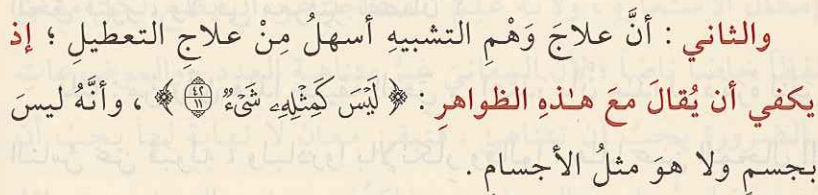 والثاني : أنَّ علاجَ وَهْمِ التشبيهِ أسهلُ مِنْ علاجِ التعطيلِ ؛ إذ
يكفي أن يُقالَ معَ هـٰذهِ الظواهرِ : ﴿ لَيْسَ كَمِثْلِهِۦ شَىْءٌ ۝٤٢ ١١ ﴾ ، وأنَّهُ ليسَ
بجسمٍ ولا هوَ مثلُ الأجسامِ .